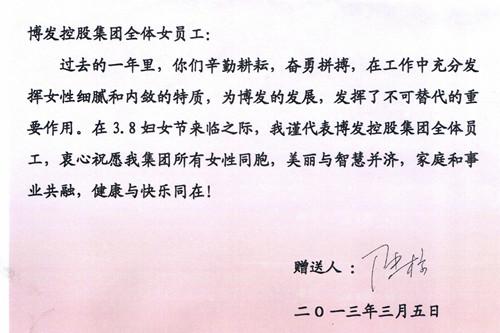 博发控股集团全体女员工：
过去的一年里，你们辛勤耕耘，奋勇拼搏，在工作中充分发
挥女性细腻和内敛的特质，为博发的发展，发挥了不可替代的重
要作用。在3.8妇女节来临之际，我谨代表博发控股集团全体员
工，衷心祝愿我集团所有女性同胞，美丽与智慧并济，家庭和事
业共融，健康与快乐同在！
赠送人：
二〇一三年三月五日